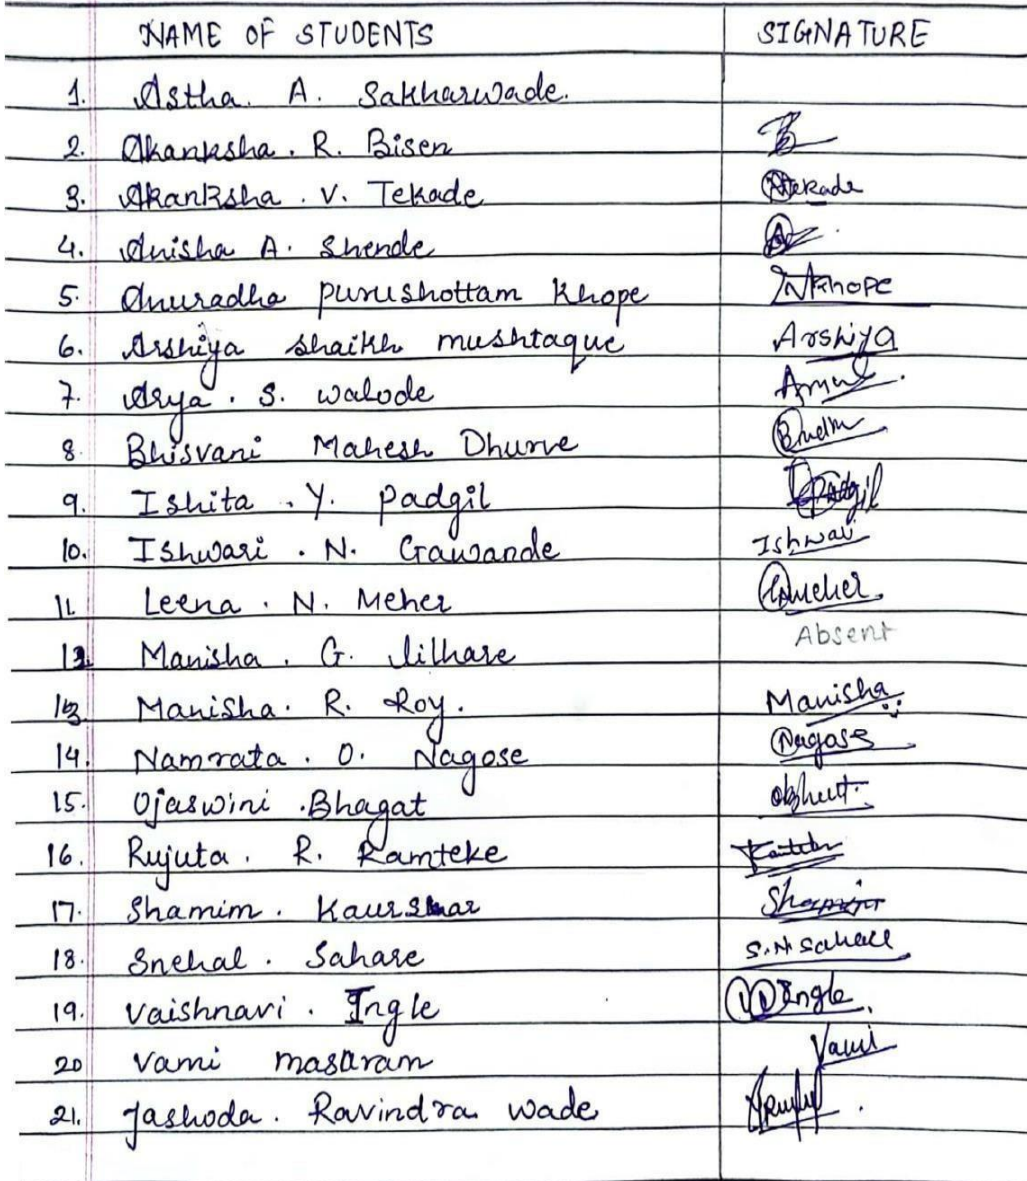 NAME OF STUDENTS SIGNATURE
1. Astha. A. Sakharwade.
2. Akanksha. R. Bisen
3. Akanksha. V. Tekade Tekade
4. Anisha A. Shende
5. Anuradha purushottam Khope Khope
6. Arshiya shaikh mushtaque Arshiya
7. Arya. S. walode
8. Bhisvani Mahesh Dhurve
9. Ishita. Y. Padgil Padgil
10. Ishwari. N. Gawande Ishwari
11. Leena. N. Meher Meher.
12. Manisha. G. lilhare Absent
13. Manisha. R. Roy. Manisha
14. Namrata. O. Nagose Nagose
15. Ojaswini .Bhagat
16. Rujuta. R. Ramteke
17. Shamim. Kaurshar Shamim
18. Snehal. Sahare S.N Sahare
19. vaishnavi. Ingle Ingle.
20 vami masaram Vami
21. Jashoda. Ravindra wade